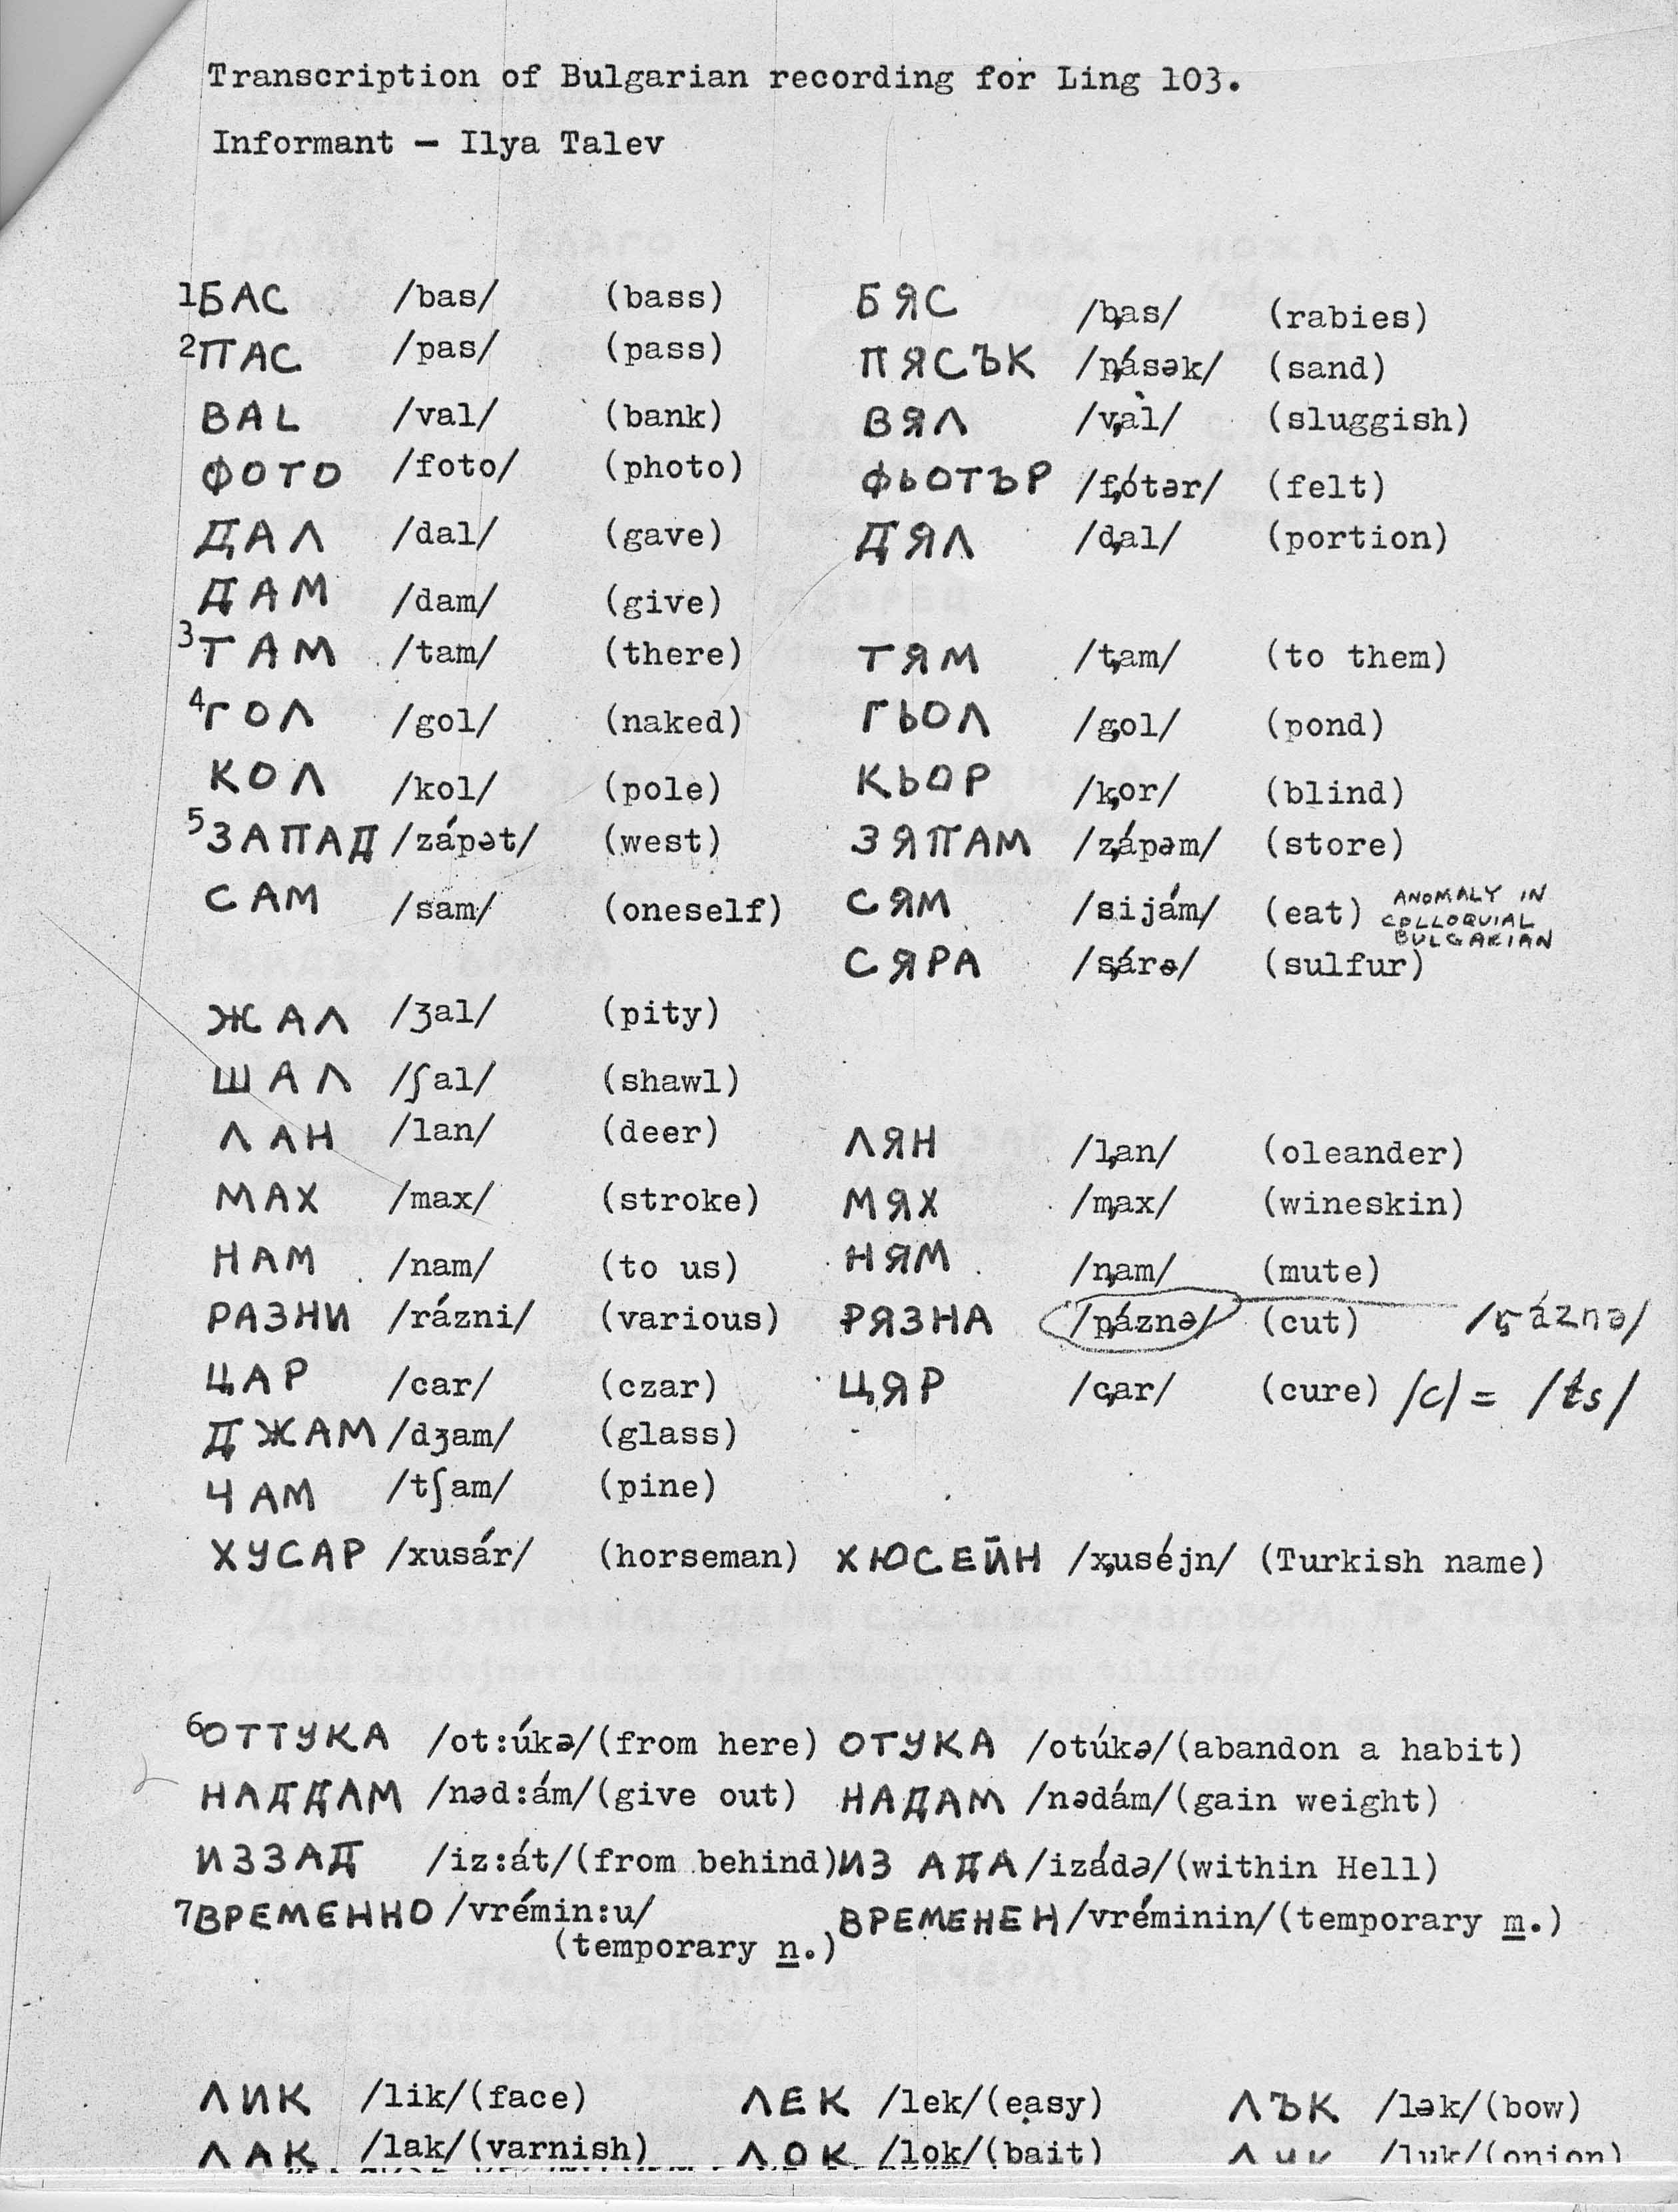 Transcription of Bulgarian recording for Ling 103.
Informant — Ilya Talev
1БАС /bas/ (bass) БЯС /b̡as/ (rabies)
2ПАС /pas/ (pass) ПЯСЪК /p̡ásək/ (sand)
ВАL /val/ (bank) ВЯЛ /v̡al/ (sluggish)
ФОТО /foto/ (photo) ФЬОТЪР /f̡ótər/ (felt)
ДАЛ /dal/ (gave) ДЯЛ /d̡al/ (portion)
ДАМ /dam/ (give)
3ТАМ /tam/ (there) ТЯМ /t̡am/ (to them)
4ГОЛ /gol/ (naked) ГЬОЛ /g̡ol/ (pond)
КОЛ /kol/ (pole) КЬОР /k̡or/ (blind)
5ЗАПАД /zápət/ (west) ЗЯПАМ /z̡ápəm/ (store)
САМ /sam/ (oneself) СЯМ /sijám/ (eat) ANOMALY IN
COLLOQUIAL
BULGARIAN
СЯРА /s̡árə/ (sulfur)
ЖАЛ /ʒal/ (pity)
ШАЛ /ʃal/ (shawl)
ЛАН /lan/ (deer) ЛЯН /l̡an/ (oleander)
МАХ /max/ (stroke) МЯХ /m̡ax/ (wineskin)
НАМ /nam/ (to us) НЯМ /n̡am/ (mute)
РАЗНИ /rázni/ (various) РЯЗНА /p̡áznə/ (cut) /r̡áznə/
ЦАР /car/ (czar) ЦЯР /c̡ar/ (cure) /c/ = /ts/
ДЖАМ /dʒam/ (glass)
ЧАМ /tʃam/ (pine)
ХУСАР /xusár/ (horseman) ХЮСЕЙН /x̡uséjn/ (Turkish name)
6ОТТУКА /ot:úkə/(from here) ОТУКА /otúkə/(abandon a habit)
НАДДАМ /nəd:ám/(give out) НАДАМ /nədám/(gain weight)
ИЗЗАД /iz:át/(from behind) ИЗ АДА /izádə/(within Hell)
7ВРЕМЕННО /vrémin:u/ ВРЕМЕНЕН /vréminin/(temporary m.)
(temporary n.)
ЛИК /lik/(face) ЛЕК /lek/(easy) ЛЪК /lək/(bow)
ЛАК /lak/(varnish) ЛОК /lok/(bait) ЛУК /luk/(onion)